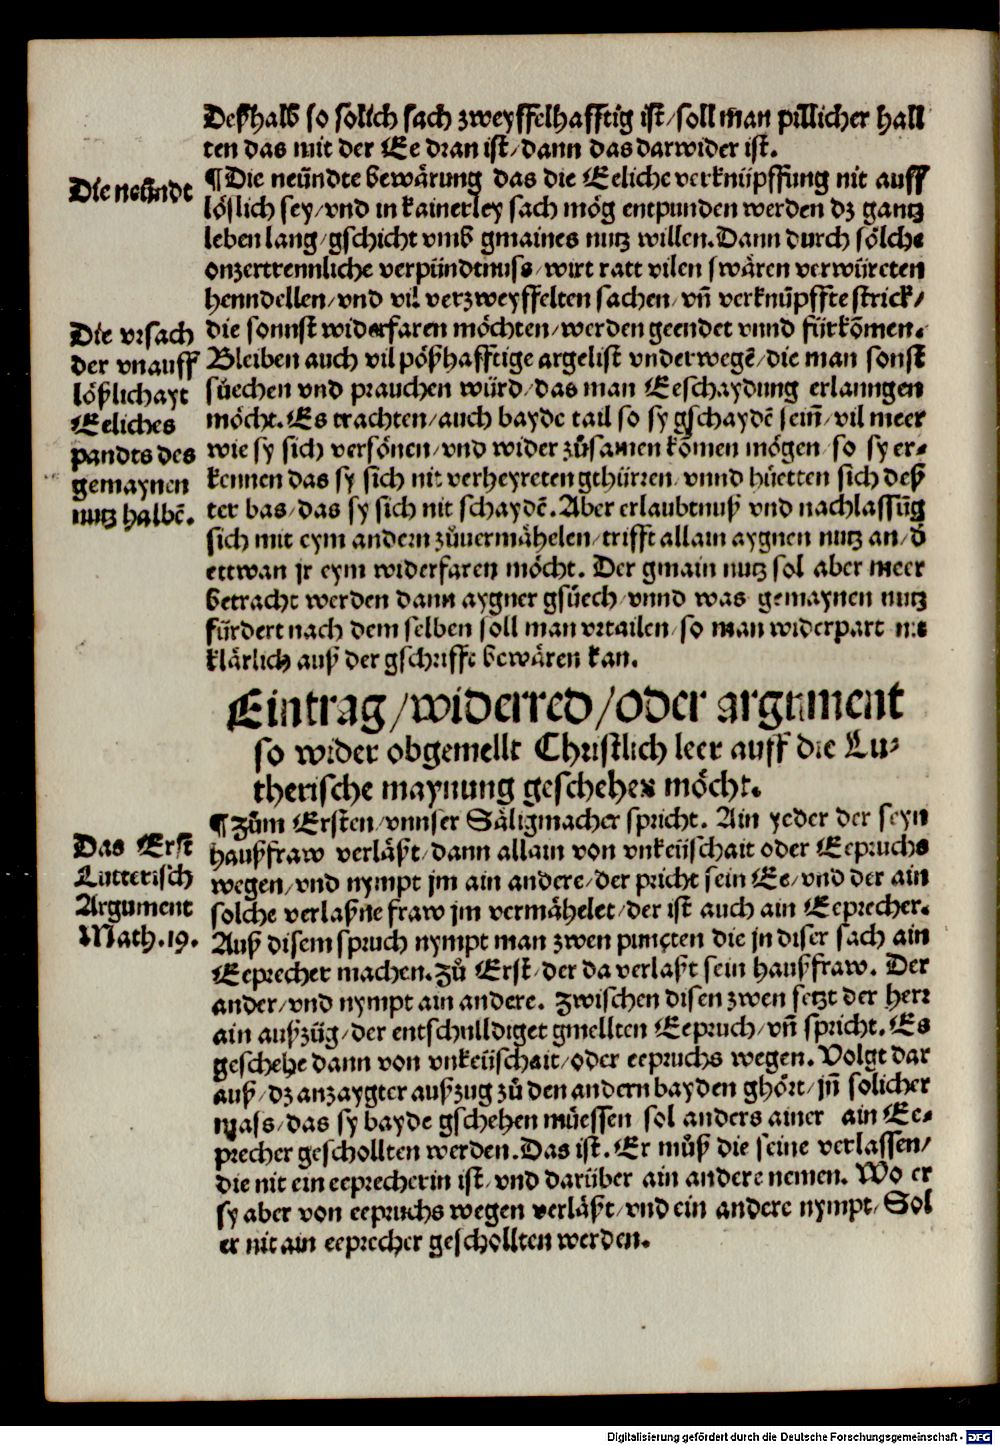 Deßhalb so solich sach zweyffelhafftig ist/soll man pillicher hall
ten das mit der Ee dran ist/dann das darwider ist.
Die neündt
¶Die neündte bewärung das die Eeliche verknüpffung nit auff
löslich sey/vnd in kainerley sach mög entpunden werden dz gantz
leben lang/gschicht vmb gmaines nutz willen.Dann durch sölche
onzertrennliche verpündtnuss/wirt ratt vilen swären verwüreten
henndellen/vnd vil verzweyffelten sachen/vn̄ verknüpffte strick/
die sonnst widerfaren möchten/werden geendet vnnd fürkōmen.
Die vrsach
der vnauff
lößlichayt
Eeliches
pandts des
gemaynen
nutz halbē.
Bleiben auch vil pößhafftige argelist vnderwegē/die man sonst
süechen vnd prauchen würd/das man Eeschaydung erlanngen
möcht.Es trachten/auch bayde tail so sy gschaydē sein̄/vil meer
wie sy sich versönen/vnd wider zůsamen kōmen mögen/so sy er-
kennen das sy sich nit verheyreten gthürren/vnnd hüetten sich deß
ter bas/das sy sich nit schaydē.Aber erlaubtnuß vnd nachlassūg
sich mit eym andern zůuermähelen/trifft allain aygnen nutz an/d̄
ettwan jr eym widerfaren möcht. Der gmain nutz sol aber meer
betracht werden dann aygner gsüech/vnnd was gemaynen nutz
fürdert nach dem selben soll man vrtailen/so man widerpart nit
klärlich auß der gschrifft bewären kan.
Eintrag/widerred/oder argument
so wider obgemellt Christlich leer auff die Lu-
therische maynung geschehen möcht.
Das Erst
Lutterisch
Argument
Math.19.
¶Zům Ersten/vnnser Säligmacher spricht. Ain yeder der seyn
haußfraw verläßt/dann allain von vnkeüschait oder Eepruchs
wegen/vnd nympt jm ain andere/der pricht sein Ee/vnd der ain
solche verlaßne fraw jm vermähelet/der ist auch ain Eeprecher.
Auß disem spruch nympt man zwen puncten die jn diser sach ain
Eeprecher machen.Zů Erst/der da verlaßt sein haußfraw. Der
ander/vnd nympt ain andere. Zwischen disen zwen setzt der herr
ain außzüg/der entschulldiget gmellten Eepruch/vn̄ spricht.Es
geschehe dann von vnkeüschait/oder eepruchs wegen.Volgt dar
auß/dz anzaygter außzug zů den andern bayden ghört/jn̄ solicher
mass/das sy bayde gschehen müessen sol anders ainer ain Ee-
precher geschollten werden.Das ist.Er můß die seine verlassen/
die nit ein eeprecherin ist/vnd darüber ain andere nemen. Wo er
sy aber von eepruchs wegen verläßt/vnd ein andere nympt/Sol
er nit ain eeprecher geschollten werden.
Digitalisierung gefördert durch die Deutsche Forschungsgemeinschaft - DFG